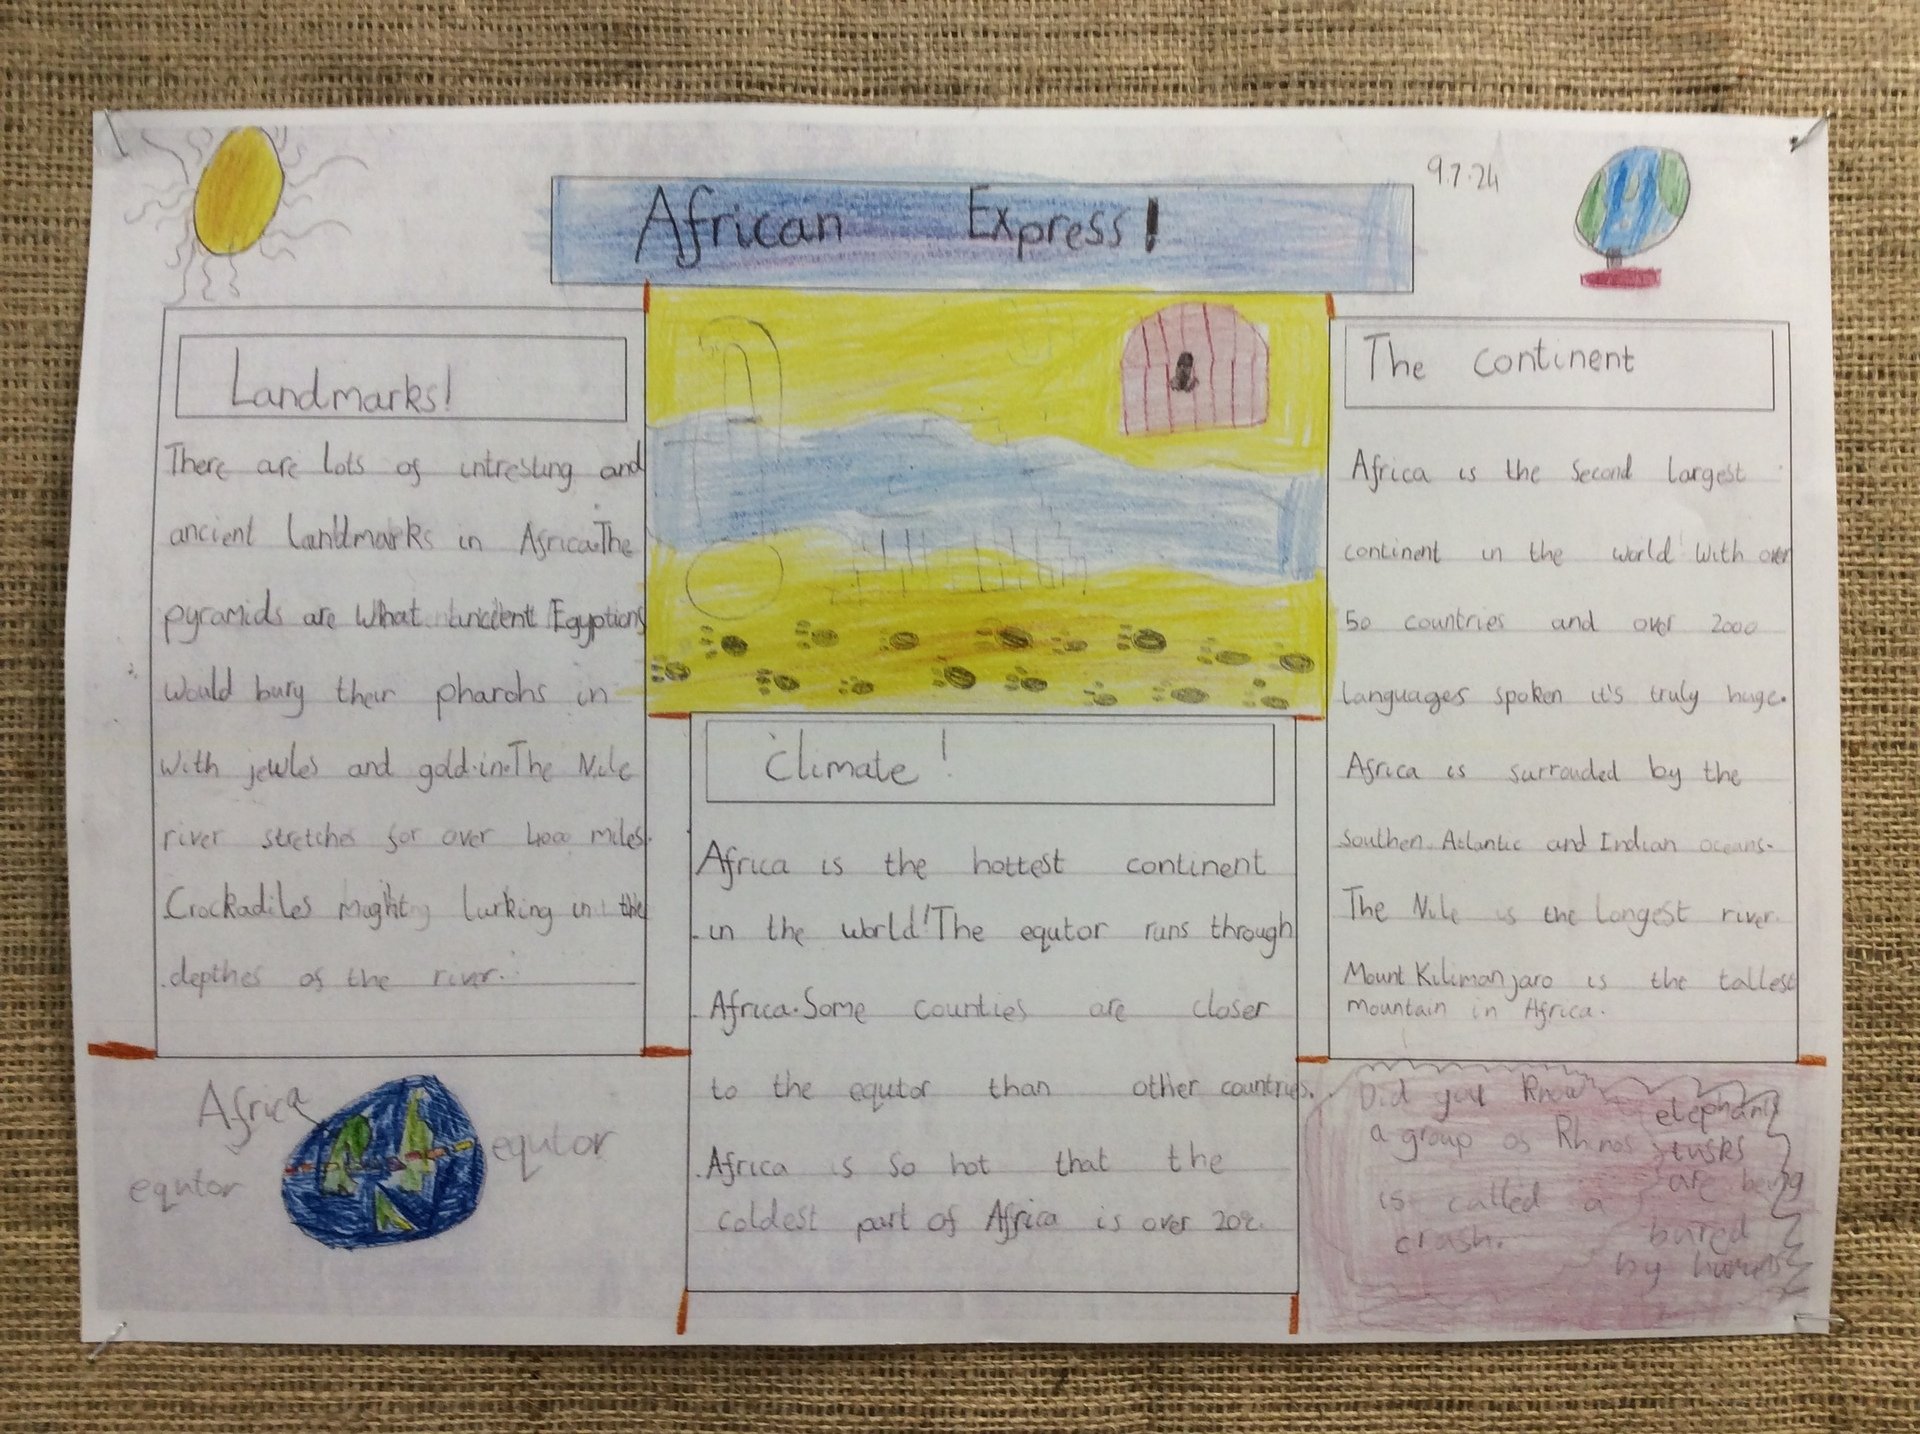 African Express!
9.7.24
Landmarks!
There are lots of intresting and
ancient landmarks in Africa.The
pyramids are what ancient Egyptions
would bury their pharohs in
with jewles and gold.in.The Nile
river stretches for over 4000 miles.
Crockadiles might lurking in the
depthes of the river.
Climate!
Africa is the hottest continent
in the world!The equtor runs through
Africa.Some counties are closer
to the equtor than other countries.
Africa is so hot that the
coldest part of Africa is over
The continent
Africa is the second largest
continent in the world with over
50 countries and over 2000
languages spoken it's truly huge.
Africa is surrouded by the
Southen. Atlantic and Indian oceans.
The Nile is the longest river.
Mount Kilimanjaro is the tallest
mountain in Africa.
Africa
equtor
equtor
Did you know
a group of Rhinos
is called a
crash.
elephant
tusks
are being
bured
by